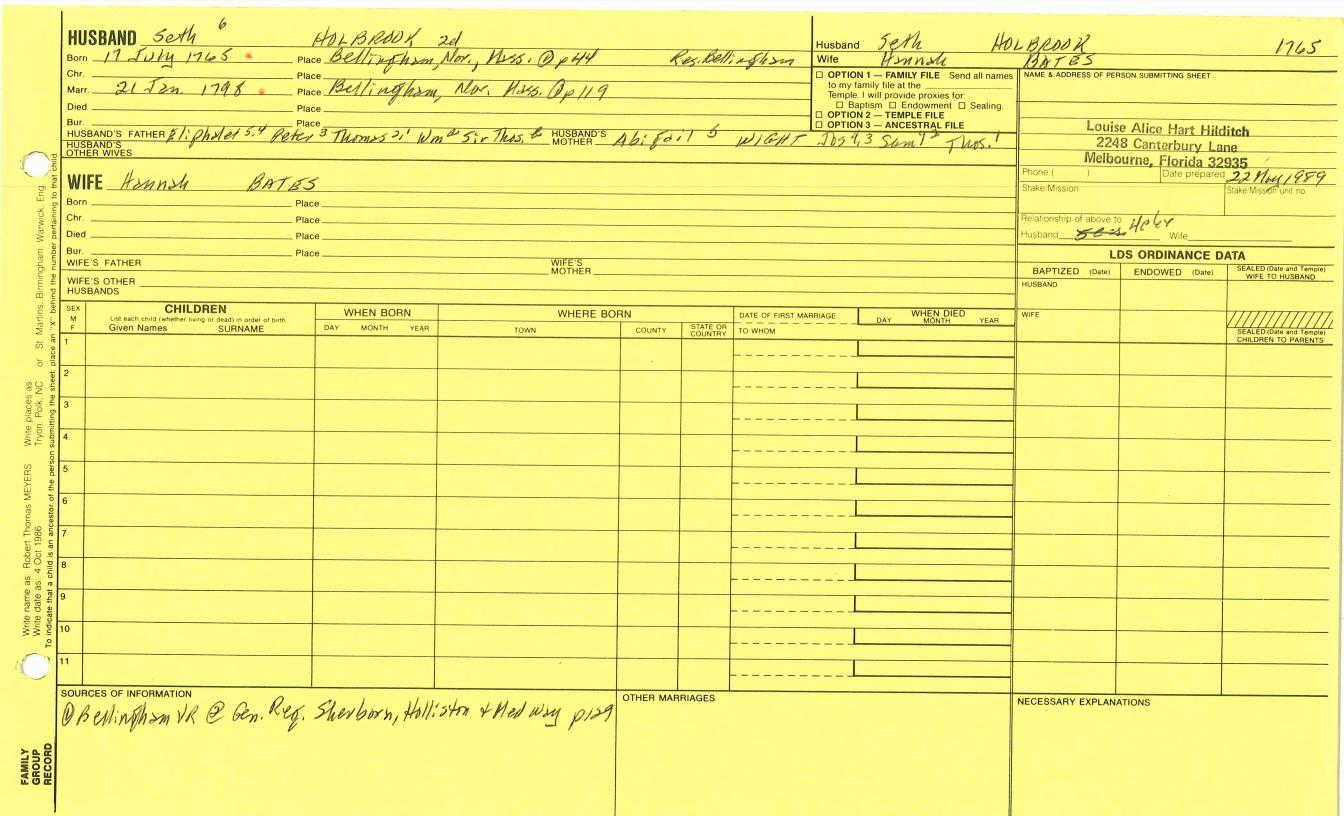 HUSBAND Seth 6 HOLBROOK 2d
Born 17 July 1765 Place Bellingham, Nor., Mass. ① p44 Res. Bellingham
Chr. Place
Marr. 21 Jan. 1798 Place Bellingham, Nor. Mass. ① p119
Died Place
Bur. Place
HUSBAND'S FATHER Eliphalet 5,4 Peter 3 Thomas 2,1 Wm Sir Thos. HUSBAND'S MOTHER Abigail 5 WIGHT Jos 4,3 Saml 2 Thos. 1
HUSBAND'S OTHER WIVES
Husband Seth HOLBROOK 1765
Wife Hannah BATES
☐ OPTION 1 — FAMILY FILE Send all names
to my family file at the
Temple. I will provide proxies for:
☐ Baptism ☐ Endowment ☐ Sealing.
☐ OPTION 2 — TEMPLE FILE
☐ OPTION 3 — ANCESTRAL FILE
NAME & ADDRESS OF PERSON SUBMITTING SHEET
Louise Alice Hart Hilditch
2248 Canterbury Lane
Melbourne, Florida 32935
Phone ( ) Date prepared 22 May 1989
Stake/Mission Stake/Mission unit no.
Relationship of above to
Husband Wife
WIFE Hannah BATES
Born Place
Chr. Place
Died Place
Bur. Place
WIFE'S FATHER WIFE'S MOTHER
WIFE'S OTHER HUSBANDS
LDS ORDINANCE DATA
BAPTIZED (Date) ENDOWED (Date) SEALED (Date and Temple) WIFE TO HUSBAND
HUSBAND
WIFE
SEALED (Date and Temple)
CHILDREN TO PARENTS
SEX
M
F
CHILDREN
List each child (whether living or dead) in order of birth
Given Names SURNAME
WHEN BORN
DAY MONTH YEAR
WHERE BORN
TOWN COUNTY STATE OR COUNTRY
DATE OF FIRST MARRIAGE
TO WHOM
WHEN DIED
DAY MONTH YEAR
1
2
3
4
5
6
7
8
9
10
11
SOURCES OF INFORMATION
① Bellingham VR ② Gen. Reg. Sherborn, Holliston & Medway p129
OTHER MARRIAGES
NECESSARY EXPLANATIONS
Write name as: Robert Thomas MEYERS Write places as: Tryon, Polk, NC or St. Martins, Birmingham, Warwick, Eng.
Write date as: 4 Oct 1986
To indicate that a child is an ancestor of the person submitting the sheet, place an "X" behind the number pertaining to that child.
FAMILY
GROUP
RECORD